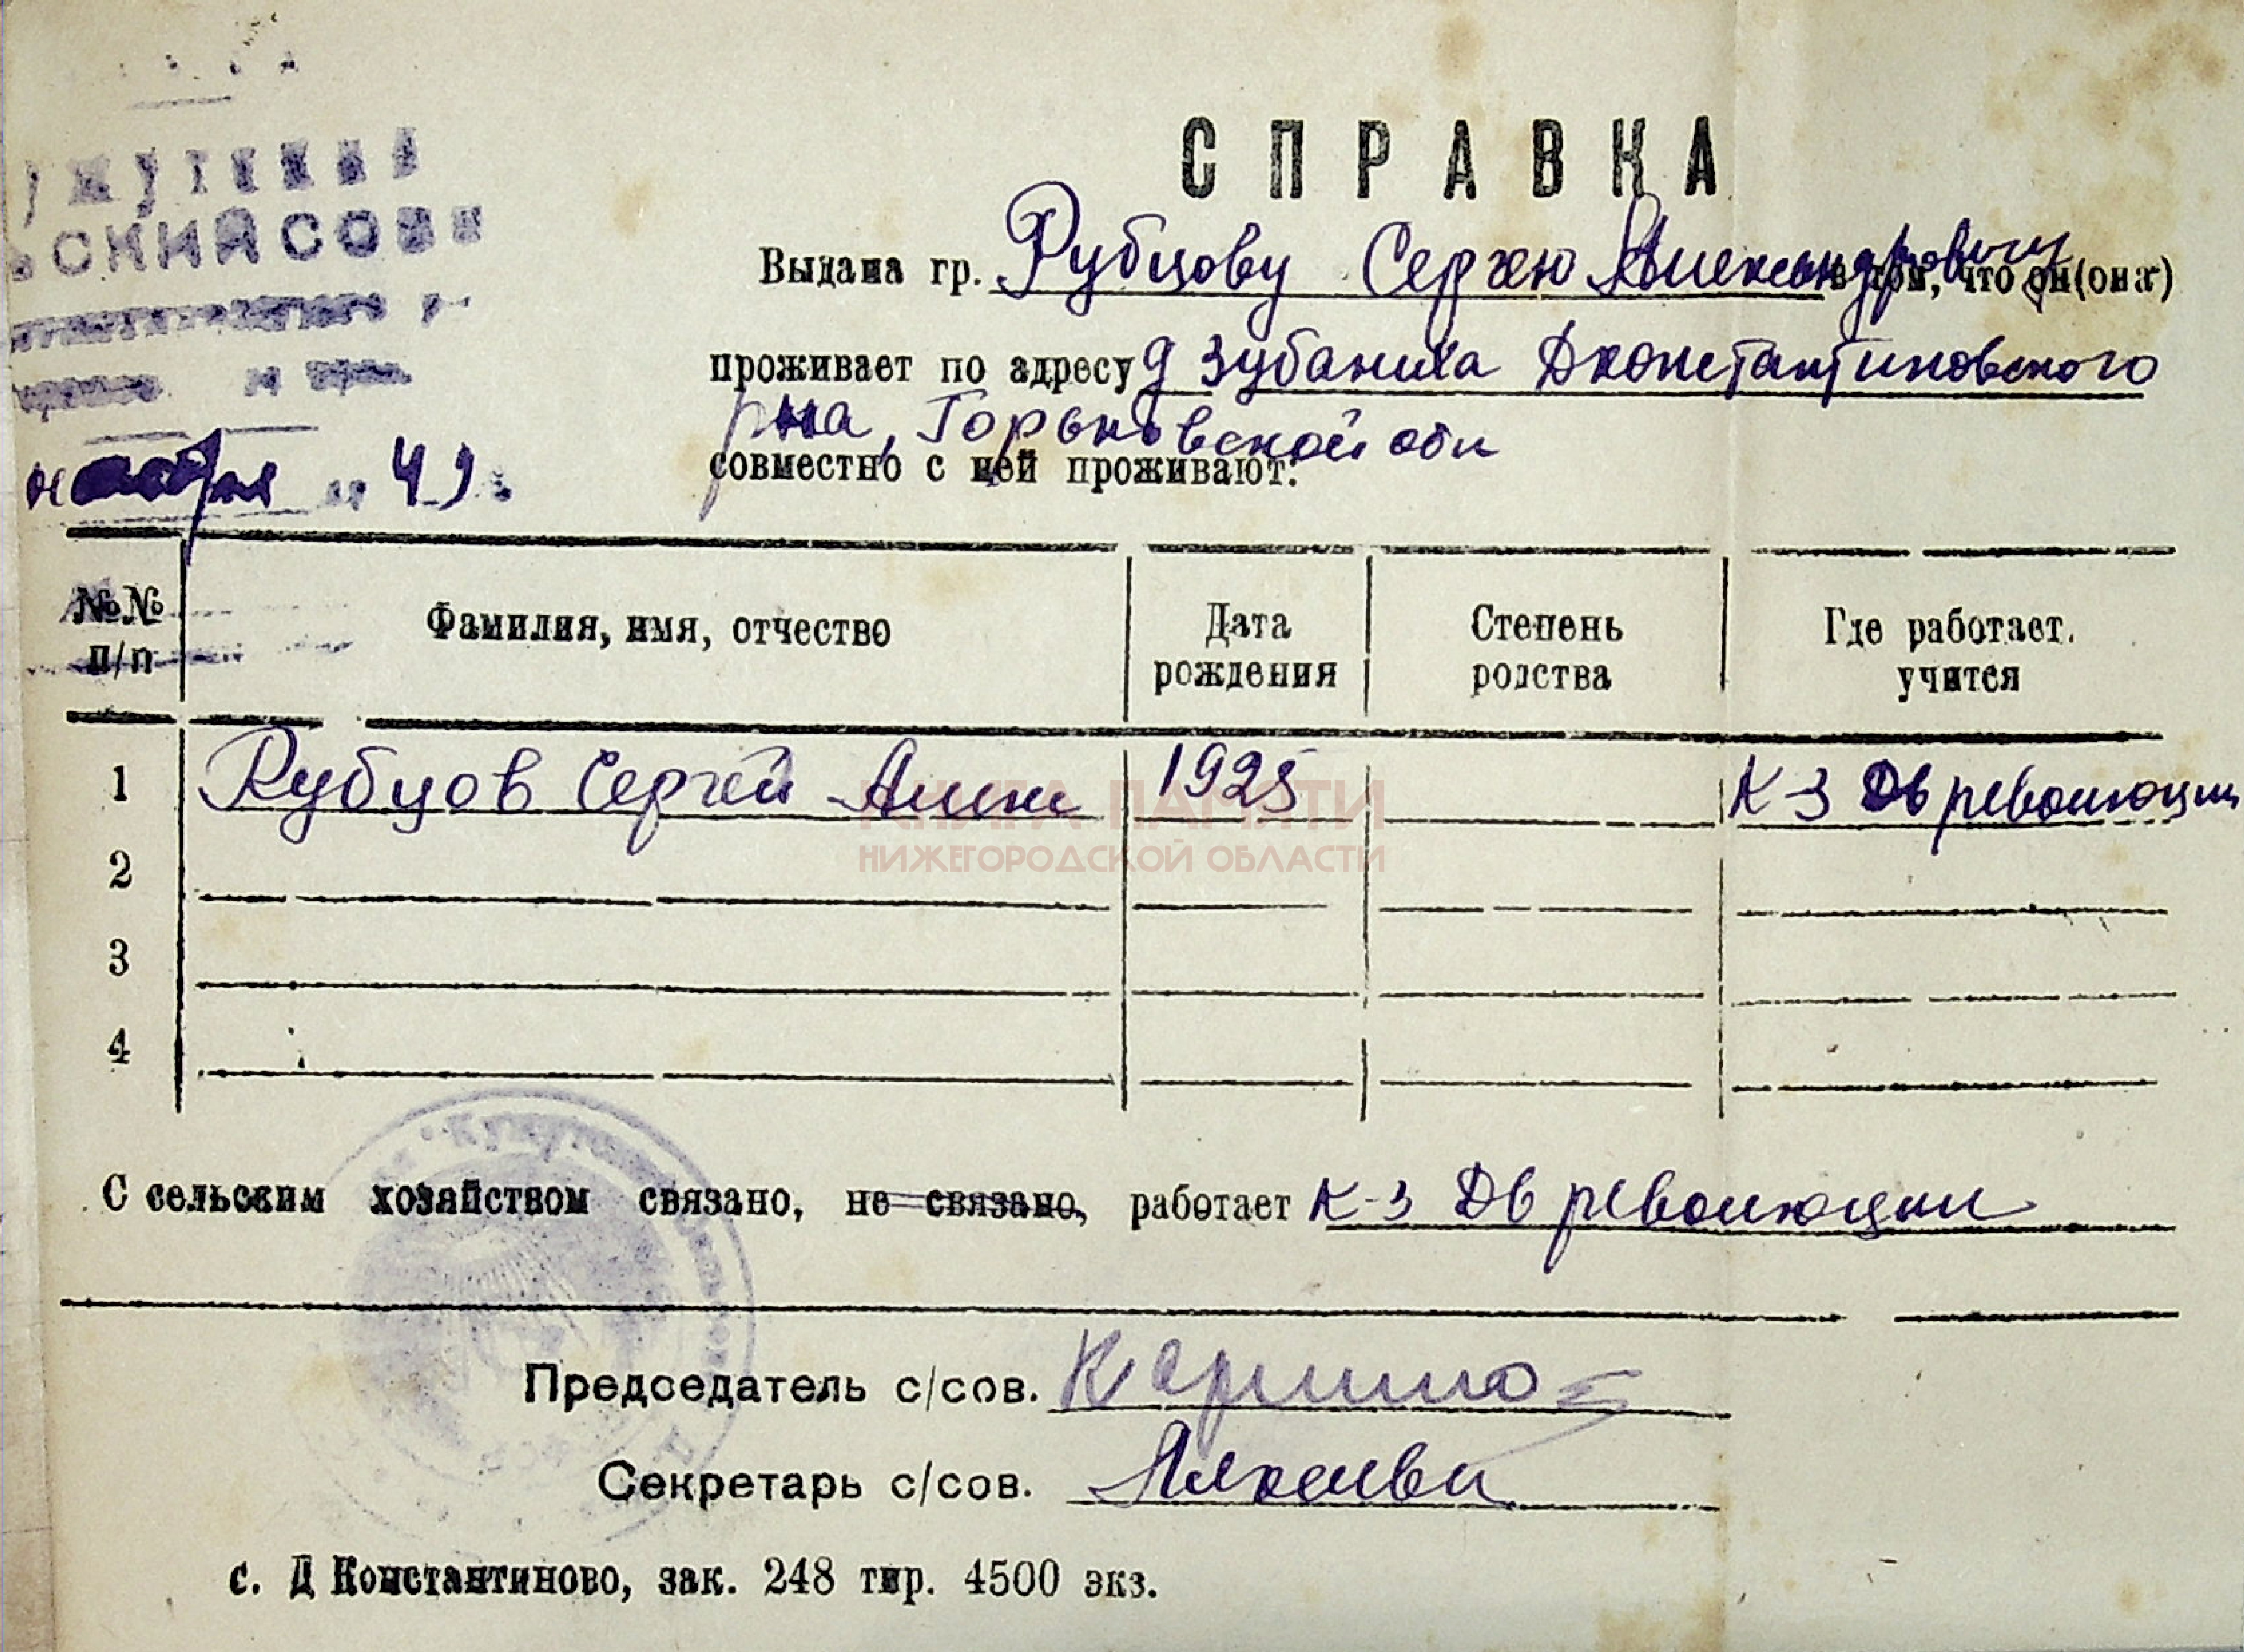 СПРАВКА
Выдана гр. Рубцову Сергею Александровичу в том, что он(она)
проживает по адресу д Зубаниха Дконстантиновского
рна, Горьковской обл
совместно с ней проживают:
ноября 49
№№ п/п
Фамилия, имя, отчество
Дата рождения
Степень родства
Где работает, учится
1 Рубцов Сергей Алек 1925 К-з Дв революции
2
3
4
КНИГА ПАМЯТИ
НИЖЕГОРОДСКОЙ ОБЛАСТИ
С сельским хозяйством связано, не связано, работает к-з Дв революции
Председатель с/сов.
Секретарь с/сов.
с. Д Константиново, зак. 248 тир. 4500 экз.